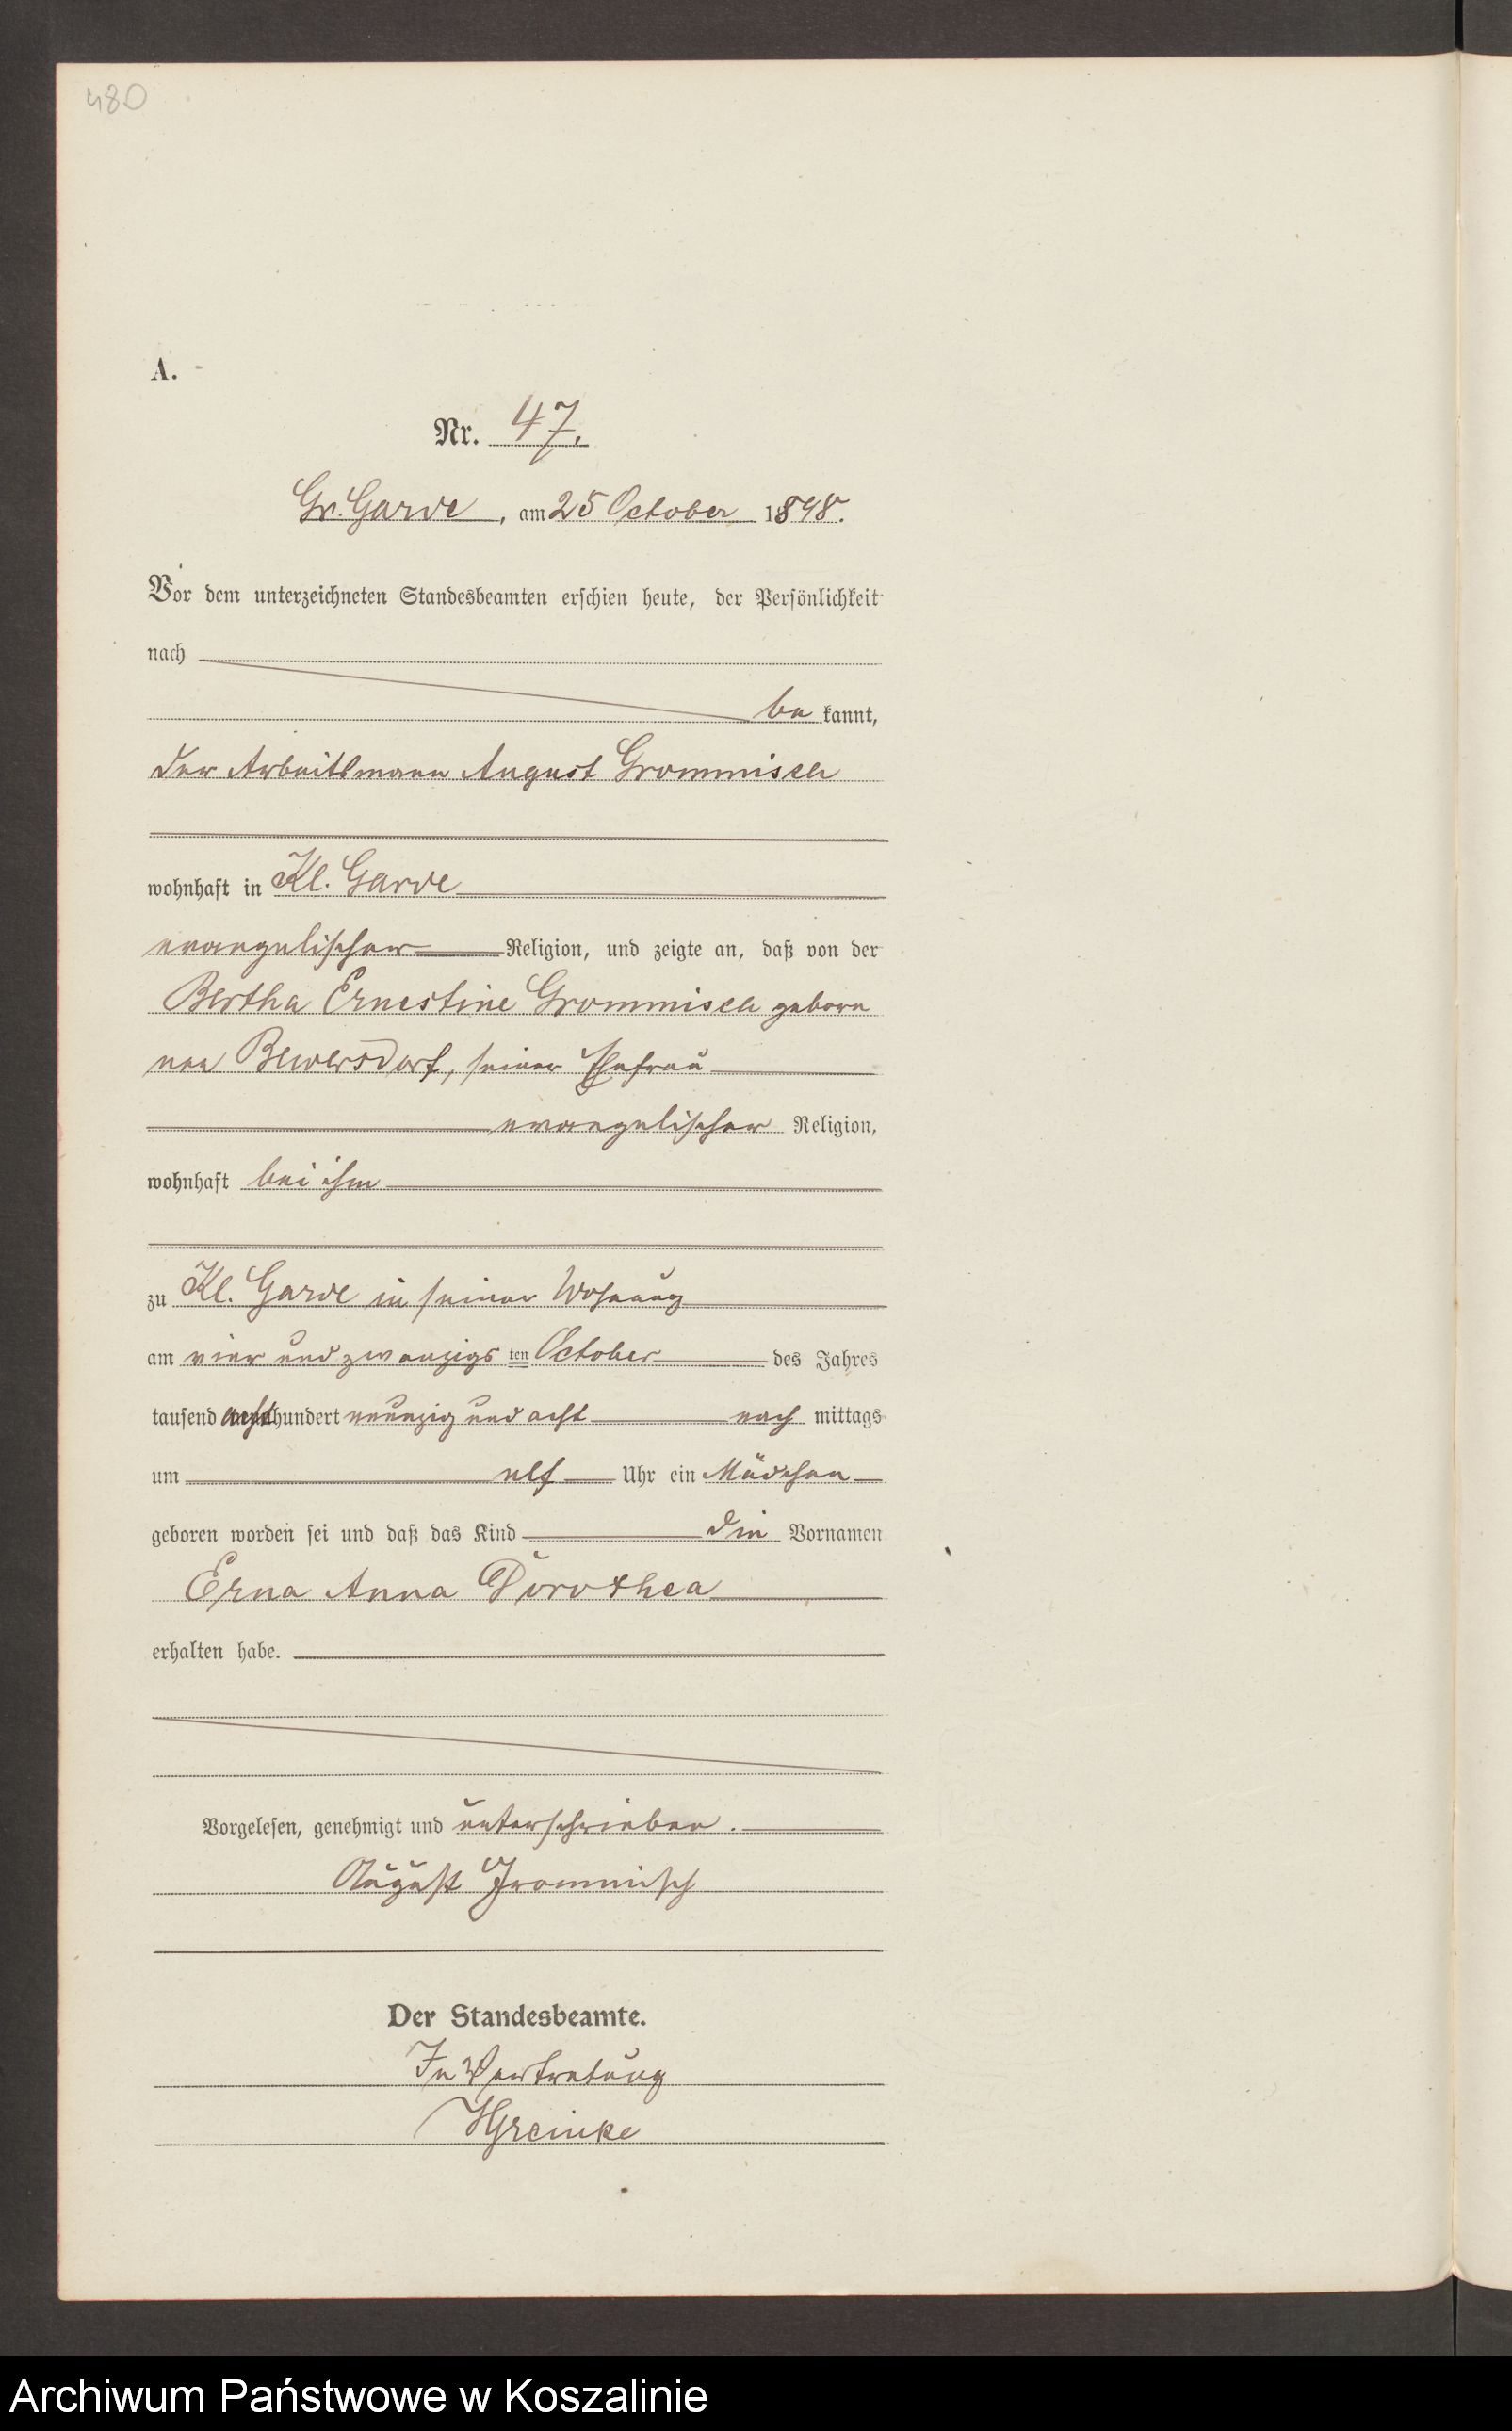 480
A.
Nr. 47.
Gr. Garde, am 25 October 1898.
Vor dem unterzeichneten Standesbeamten erschien heute, der Persönlichkeit
nach
be kannt,
der Arbeitsmann August Grommisch
wohnhaft in Kl. Garde
evangelischer Religion, und zeigte an, daß von der
Bertha Ernestine Grommisch gebore
nen Bewersdorf, seiner Ehefrau
evangelischer Religion,
wohnhaft bei ihm
zu Kl. Garde in seiner Wohnung
am vier und zwanzigs ten October des Jahres
tausend achthundert neunzig und acht nach mittags
um elf Uhr ein Mädchen
geboren worden sei und daß das Kind die Vornamen
Erna Anna Dorothea
erhalten habe.
Vorgelesen, genehmigt und unterschrieben.
August Grommisch
Der Standesbeamte.
In Vertretung
Greinke
Archiwum Państwowe w Koszalinie